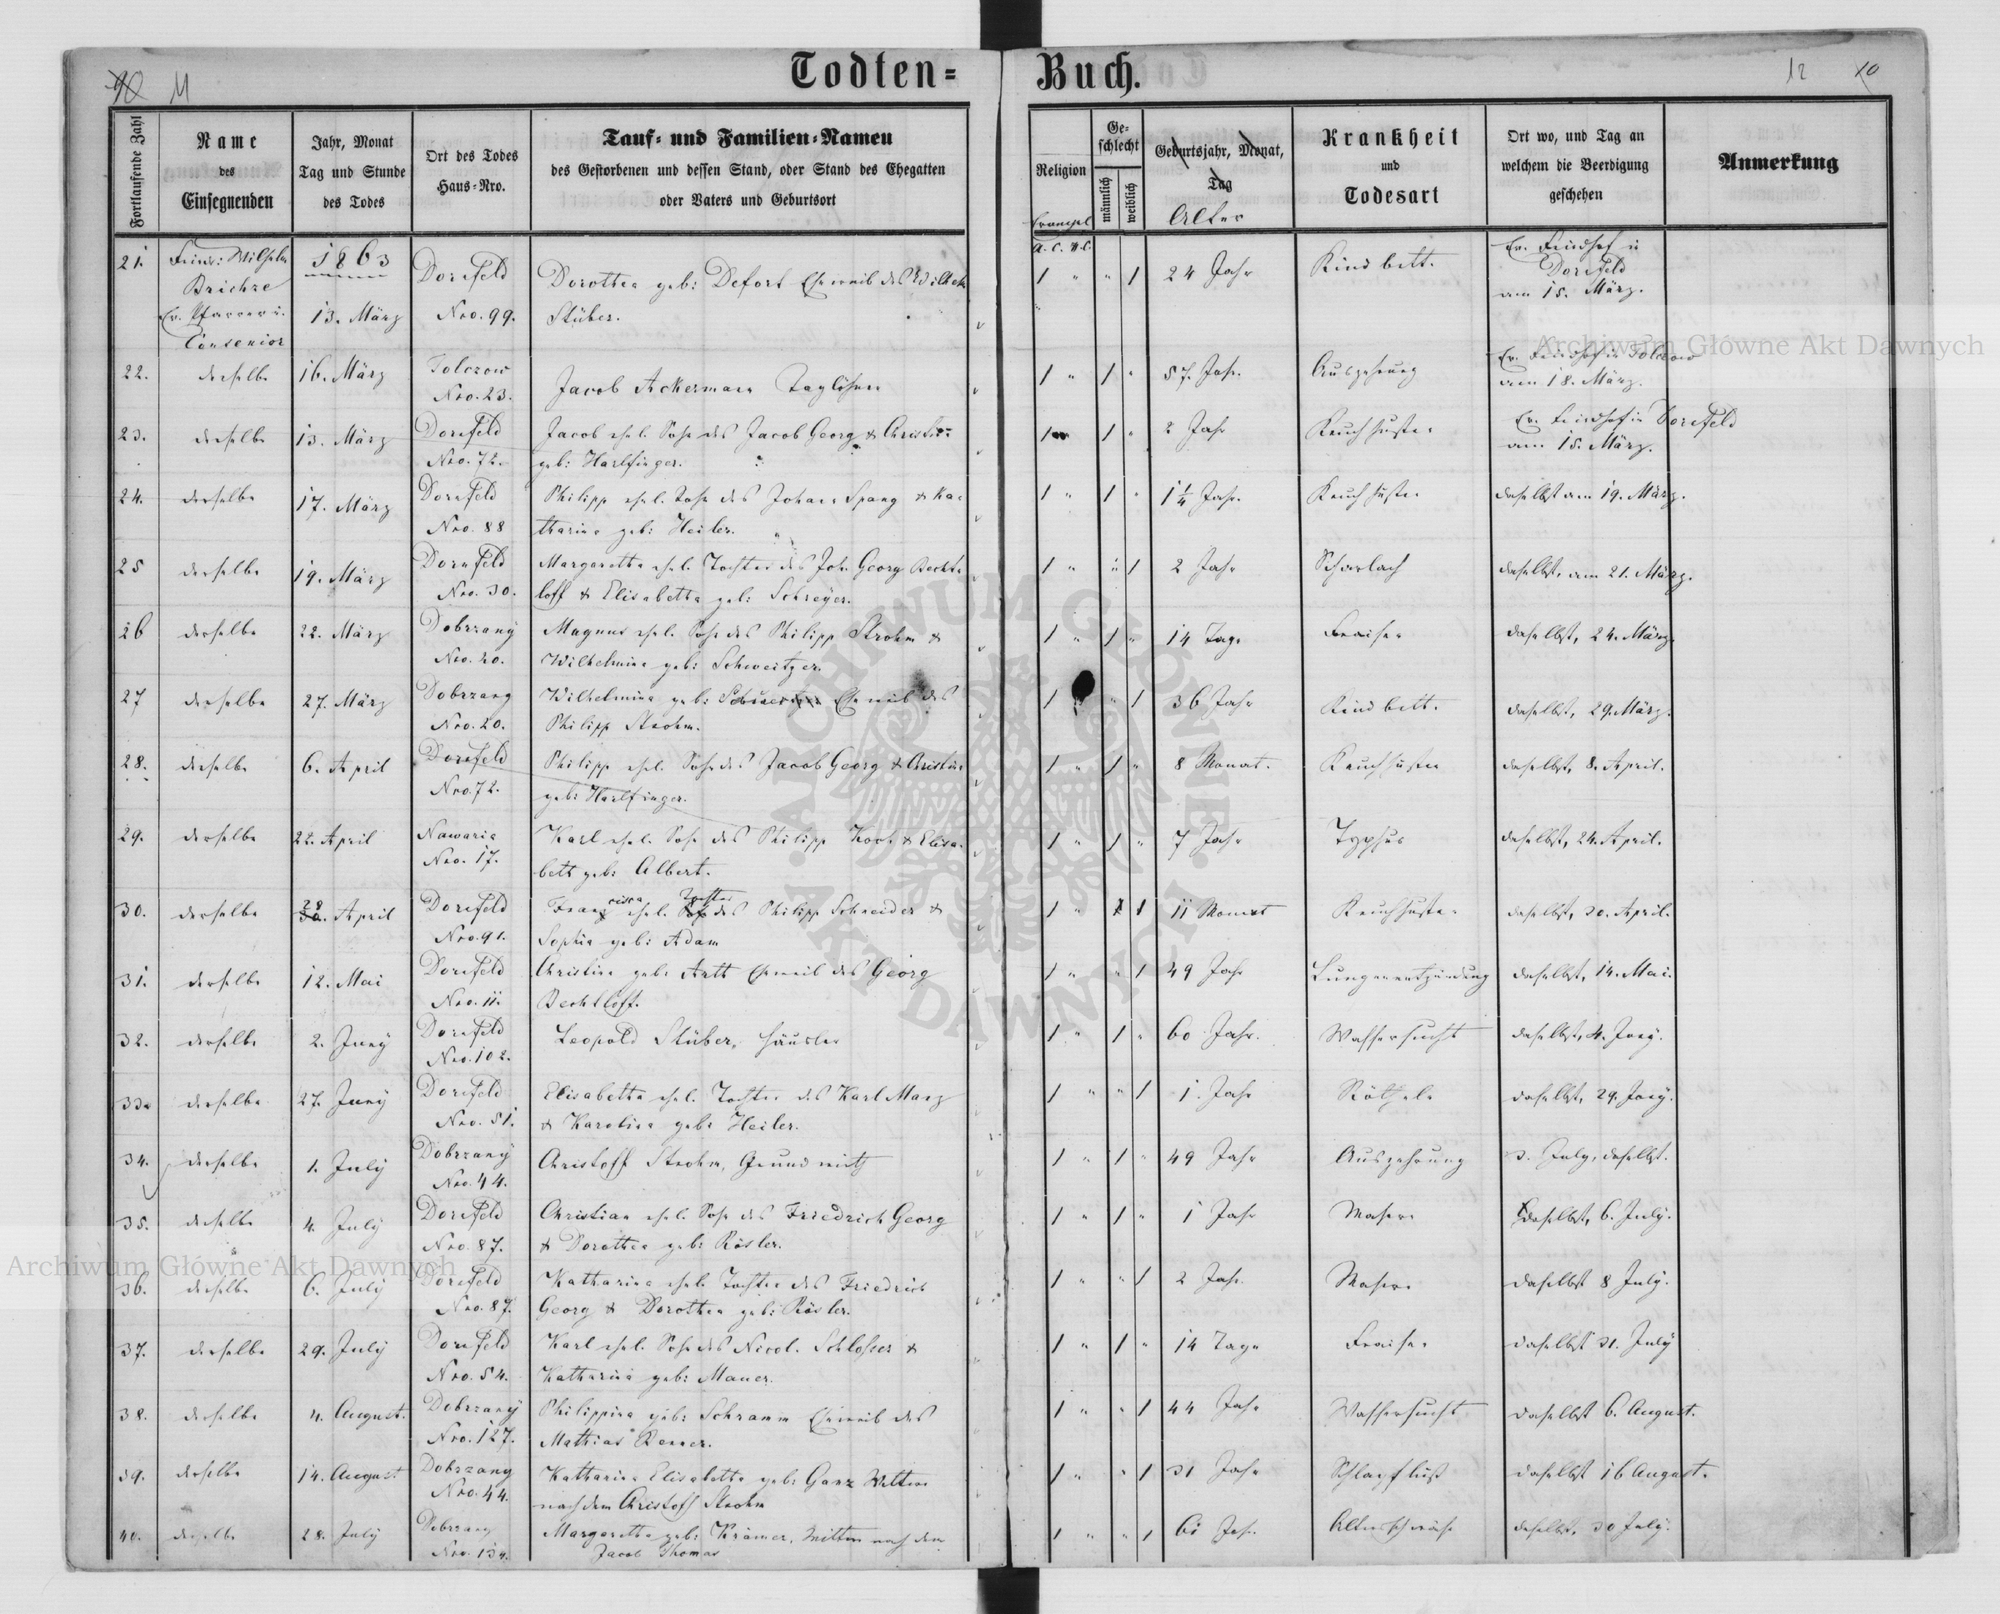 Todten= Buch.
90 11
12 10
Fortlaufende Zahl
Name
des
Einsegnenden
Jahr, Monat
Tag und Stunde
des Todes
Ort des Todes
Haus-Nro.
Tauf- und Familien-Namen
des Gestorbenen und dessen Stand, oder Stand des Ehegatten
oder Vaters und Geburtsort
Religion
Evangel
A. C. H. C.
Ge-
schlecht
männlich
weiblich
Geburtsjahr, Monat,
Tag
Alter
Krankheit
und
Todesart
Ort wo, und Tag an
welchem die Beerdigung
geschehen
Anmerkung
21. 1863 Dornfeld Dorothea geb: Defort Eheweib des Wilhelm 1 " " 1 24 Jahr Kindbett. Ev. Friedhof in
Dornfeld
am 15. März.
Ev. Pfarrer u. 13. März Nro. 99. Stüber.
Consenior
22. derselbe 16. März Tolczow Jacob Ackermann Taglöhner 1 " 1 " 57. Jahr. Auszehrung Ev. Friedhof in Tolczow
Nro. 23. am 18. März.
23. derselbe 13. März Dornfeld Jacob ehel. Sohn des Jacob Georg & Christin: 1 1 " 2 Jahr Keuchhusten Ev. Friedhof in Dornfeld
Nro. 72. geb: Harlfinger. am 15. März.
24. derselbe 17. März Dornfeld Philipp ehel. Sohn des Johann Spang & Ka= 1 " 1 " 1 1/4 Jahr. Keuchhusten daselbst am 19. März.
Nro. 88 tharina geb: Heiler.
25 derselbe 19. März Dornfeld Margaretha ehel. Tochter des Joh. Georg Becht= 1 " " 1 2 Jahr Scharlach daselbst, am 21. März.
Nro. 30. loff & Elisabetha geb: Schreyer.
26 derselbe 22. März Dobrzany Magnus ehel. Sohn des Philipp Strohm & 1 " 1 " 14 Tage Fraisen daselbst, 24. März.
Nro. 20. Wilhelmina geb: Schweitzer.
27 derselbe 27. März Dobrzany Wilhelmina geb: Schweitzer Eheweib des 1 " 1 36 Jahr Kindbett. daselbst, 29. März.
Nro. 20. Philipp Strohm.
28. derselbe 6. April Dornfeld Philipp ehel. Sohn des Jacob Georg & Christin: 1 " 1 " 8 Monat. Keuchhusten daselbst, 8. April.
Nro. 72. geb: Harlfinger.
29. derselbe 22. April Nawaria Karl ehel. Sohn des Philipp Koch & Elisa= 1 " 1 " 7 Jahr Typhus daselbst, 24. April.
Nro. 17. beth geb: Albert.
30. derselbe 28. April Dornfeld Franzisca ehel. Tochter des Philipp Schneider & 1 " 1 1 11 Monat Keuchhusten daselbst, 30. April.
Nro. 91. Sophia geb: Adam
31. derselbe 12. Mai Dornfeld Christina geb: Antt Eheweib des Georg 1 " " 1 49 Jahr Lungenentzündung daselbst, 14. Mai.
Nro. 11. Bechtloff.
32. derselbe 2. Juny Dornfeld Leopold Stüber, Häusler 1 " 1 " 60 Jahr. Wassersucht daselbst, 4. Juny.
Nro. 102.
33. derselbe 27. Juny Dornfeld Elisabetha ehel. Tochter des Karl Manz 1 " " 1 1. Jahr Rötheln daselbst, 29. Juny.
Nro. 51. & Karolina geb: Heiler.
34. derselbe 1. July Dobrzany Christoff Strohm, Grundwirth 1 " 1 " 49 Jahr Auszehrung 3. July, daselbst.
Nro. 44.
35. derselbe 4. July Dornfeld Christian ehel. Sohn des Friedrich Georg 1 " 1 " 1 Jahr Masern daselbst, 6. July.
Nro. 87. & Dorothea geb: Rösler.
36. derselbe 6. July Dornfeld Katharina ehel. Tochter des Friedrich 1 " " 1 2 Jahr. Masern daselbst 8 July.
Nro. 87. Georg & Dorothea geb: Rösler.
37. derselbe 29. July Dornfeld Karl ehel. Sohn des Nicol. Schlosser & 1 " 1 " 14 Tage Fraisen daselbst 31. July
Nro. 54. Katharina geb: Mauer.
38. derselbe 4. August. Dobrzany Philippina geb: Schramm Eheweib des 1 " " 1 44 Jahr Wassersucht daselbst 6. August.
Nro. 127. Mathias Renner.
39. derselbe 14. August Dobrzany Katharina Elisabetha geb: Ganz Wittwe 1 " " 1 31 Jahr Schlagfluß daselbst 16 August.
Nro. 44. nach dem Christoff Strohm
40. derselbe 28. July Dobrzany Margaretha geb: Krämer, Wittwe nach dem 1 " " 1 61 Jahr. Altersschwäche daselbst, 30 July.
Nro. 134. Jacob Thomas
Archiwum Główne Akt Dawnych
Archiwum Główne Akt Dawnych
ARCHIWUM GŁÓWNE AKT DAWNYCH